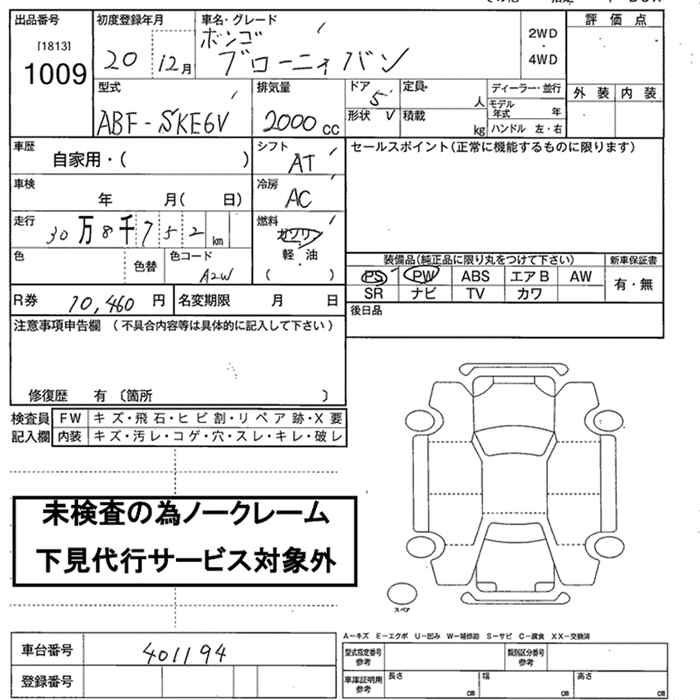 出品番号
[1813]
1009
初度登録年月
20 12月
車名・グレード
ボンゴ
ブローニィバン
2WD
・
4WD
評価点
外装 内装
型式
ABF-SKE6V
排気量
2000 cc
ドア 5
形状 V
定員 人
積載 kg
ディーラー・並行
モデル年式 年
ハンドル 左・右
車歴
自家用・( )
シフト
AT
セールスポイント(正常に機能するものに限ります)
車検
年 月( 日)
冷房
AC
走行
30万8千752km
燃料
ガソリン
軽・油
( )
色
色替
色コード
A2W
装備品(純正品に限り丸をつけて下さい)
新車保証書
PS PW ABS エアB AW
SR ナビ TV カワ
有・無
R券 10,460 円
名変期限 月 日
後日品
注意事項申告欄 (不具合内容等は具体的に記入して下さい)
修復歴 有 〔箇所 〕
検査員
記入欄
FW キズ・飛石・ヒビ割・リペア跡・X要
内装 キズ・汚レ・コゲ・穴・スレ・キレ・破レ
未検査の為ノークレーム
下見代行サービス対象外
スペア
A-キズ E-エクボ U-凹み W-補修跡 S-サビ C-腐食 XX-交換済
車台番号 401194
登録番号
型式指定番号
参考
類別区分番号
参考
車庫証明用
参考
長さ cm
幅 cm
高さ cm